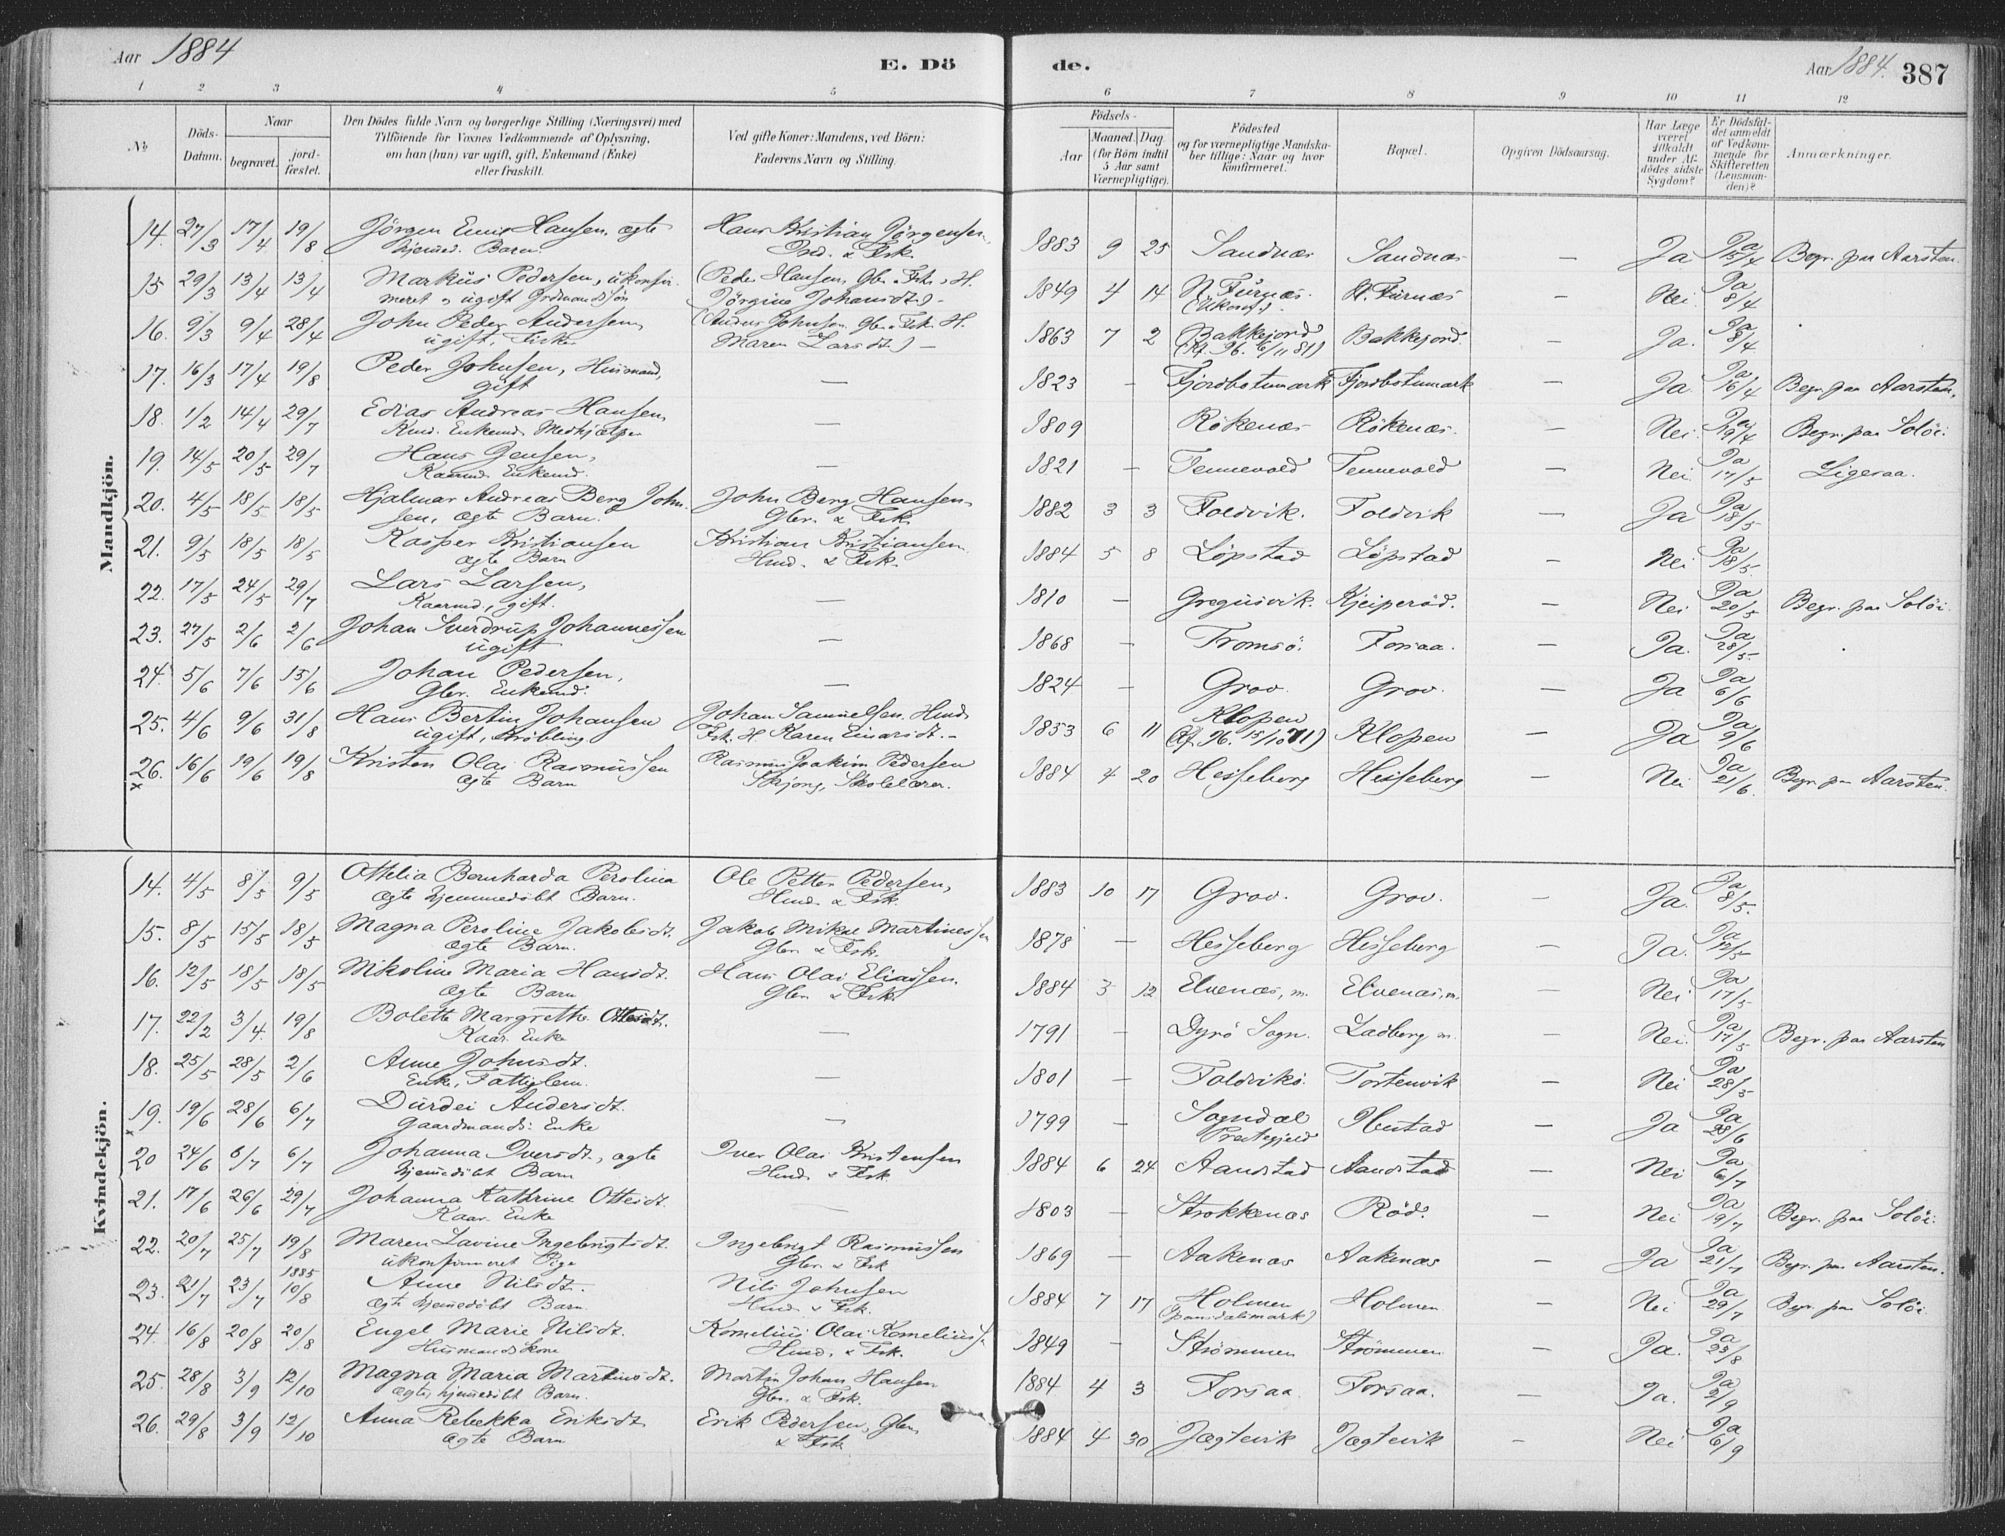 Aar 1884
E. Dö
de.
Aar 1884. 387
1 2 3 4 5 6 7 8 9 10 11 12
No
Döds-Datum.
Naar
begravet. jordfæstet.
Den Dödes fulde Navn og borgerlige Stilling (Næringsvei) med
Tilföiende for Voxnes Vedkommende af Oplysning,
om han (hun) var ugift, gift, Enkemand (Enke)
eller fraskilt.
Ved gifte Koner: Mandens, ved Börn:
Faderens Navn og Stilling.
Födsels-
Aar Maaned. Dag.
(for Börn indtil
5 Aar samt
Værnepligtige).
Födested
og for værnepligtige Mandskaber tillige: Naar og hvor
konfirmeret.
Bopæl.
Opgiven Dödsaarsag.
Har Læge
været
tilkaldt
under Afdödes sidste
Sygdom?
Er Dödsfaldet anmeldt
af Vedkommende for
Skifteretten
(Lensmanden)?
Anmærkninger.
Mandkjön.
14. 27/3 17/4 19/8 Jörgen Hansen, ægte Hans Kristian Jörgensen, 1883 9 25 Sandnæs Sandnæs — Ja Ja 15/4 Begr. paa Aarsten.
hjemmed. Barn. & Fsk.
15 29/3 13/4 13/4 Markus Pedersen, ukonfir- (Peder Hansen, Gbr. Fsk. H. 1849 4 14 N. Furnæs. N. Furnæs — Nei. Ja 8/4
meret, ugift Grdmandssön Jörgine Johansdt.) - (Ukonf.)
16. 9/3 9/4 28/4 John Peder Andersen, (Anders Johnsen, Gbr. Fsk. H. 1863 7 2 Bakkejord Bakkejord. — Ja. Ja 8/4
ugift, Fisker Maren Larsdt.) - (Kf. Ib. 6/11 81)
17. 16/3 17/4 19/8 Peder Johnsen, Husmand, — 1823 — Fjordbotnmark Fjordbotnmark — Ja. Ja 16/4 Begr. paa Aarsten,
gift
18. 1/2 14/4 29/7 Edias Andreas Hansen, — 1809 Rökenæs Rökenæs. — Nei. Ja 19/4 Begr. paa Solöi.
Enkemd. Medhjælper
19. 14/5 20/5 29/7 Hans Jensen, — 1821 — Tennevold Tennevold — Nei Ja 17/5 Ligesaa.
Kaarmd. Enkemd.
20. 4/5 18/5 18/5 Hjalmar Andreas Berg John- John Berg Hansen, 1882 3 3 Foldvik. Foldvik — Ja Ja 18/5
sen, ægte Barn. Gbr. & Fsk.
21. 9/5 18/5 18/5 Kasper Kristiansen Kristian Kristiansen. 1884 5 8 Löpstad Löpstad — Nei Ja 18/5.
ægte Barn Hmd. & Fsk.
22. 17/5 24/5 29/7 Lars Larsen, — 1810 — Gregusvik. Kjeiperöd. — Nei Ja 20/5 Begr. paa Solöi
Kaarmd, gift.
23. 27/5 2/6 2/6 Johan Sverdrup Johannessen — 1868 — Tromsö. Forsaa. — Ja. Ja 28/5.
ugift
24. 5/6 7/6 15/6 Johan Pedersen, — 1824 — Grov. Grov. — Ja Ja 6/6
Gbr. Enkemd.
25. 4/6 9/6 31/8 Hans Bertin Johansen Johan Samuelsen. Hmd. 1853 6 11 Klopen Klopen — Ja Ja 9/6
ugift, Kröbling Fsk. H Karen Einarsdt. - (Kf. Ib. 15/10 71)
26. 16/6 19/6 19/8 Kristen Olai Rasmussen Rasmus Joakim Pedersen 1884 4 20 Hesseberg Hesseberg — Nei Ja 21/6. Begr. paa Aarsten.
x ægte Barn Skjong, Skolelærer.
Kvindekjön.
14. 4/5 8/5 9/5 Othelia Bernharda Perolina Ole Petter Pedersen, 1883 10 17 Grov. Grov. — Ja. Ja 8/5.
ægte hjemmedöbt Barn. Hmd. & Fsk.
15. 8/5 15/5 18/5 Magna Peroline Jakobsdt. Jakob Mikal Martinessen 1878 — Hesseberg Hesseberg — Ja. Ja 12/5
ægte Barn. Gbr. & Fsk.
16. 12/5 18/5 18/5 Nikoline Maria Hansdt. Hans Olai Eliassen. 1884 3 12 Elvenæs, m. Elvenæs, m. — Nei Ja 17/5
ægte Barn Gbr. & Fsk.
17. 22/2 3/4. 19/8 Bolette Margrethe Ottesdt. — 1791 — Dyrö Sogn. Ladberg m. — Nei. Ja 17/5 Begr. paa Aarsten
Kaar. Enke
18. 25/5 28/5 2/6 Anne Johnsdt. — 1801 — Foldvik. Tortenvik — Nei Ja 28/5
Enke, Fattiglem.
19. 19/6 28/6 6/7 Durdei Andersdt. — 1799 Sogndal Ibestad — Ja Ja 28/6
x Gaardmands Enke Prestegjeld
20 24/6 6/7 6/7 Johanna Iversdt., ægte Iver Olai Kristensen 1884 6 24 Aandstad Aandstad — Nei Ja 6/7
hjemmedöbt Barn Hmd. & Fsk
21. 17/6 26/6 29/7 Johanna Kathrine Ottesdt. — 1803 — Strokkenæs Röd. — Nei Ja 19/7 Begr. paa Solöi.
Kaar. Enke
22. 20/7 25/7 19/8 Maren Lavine Ingebrigtsdt. Ingebrigt Rasmussen 1869 — Aakenæs Aakenæs — Ja Ja 21/7 Begr. paa Aarsten.
ukonfirmeret Pige Gbr. & Fsk
23. 21/7 23/7 1885 10/8 Anne Nilsdt. Nils Johnsen 1884 7 17 Holmen Holmen. — Nei Ja 29/7 Begr. paa Solöi
ægte hjemmedöbt Barn. Hmd. & Fsk. (Spansdalsmark)
24. 16/8 20/8 20/8 Engel Marie Nilsdt. Kornelius Olai Korneliuss. 1849 — Strömmen Strömmen — Ja. Ja 23/8
Husmandskone Hmd. & Fsk.
25. 28/8 3/9 12/10 Magna Maria Martinsdt. Martin Johan Hansen 1884 4 3 Forsaa. Forsaa. — Ja. Ja 2/9
ægte hjemmedöbt Barn. Gbr. & Fsk.
26. 29/8 3/9 12/10 Anna Rebekka Eriksdt. Erik Pedersen, Gbr. 1884 4 30 Jægtevik Jægtevik — Nei Ja 6/9
ægte Barn & Fsk